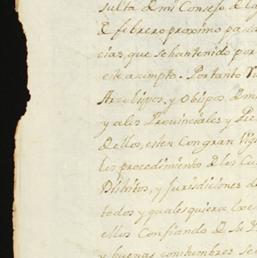 sulta de mi Consejo de la
de febrero proximo pasad
cias que se han tenido por
este asumpto. Por tanto
Arzobispos, y Obispos de mis
y a los Provinciales y
dellos, esten con gran
los procedimientos de los Cu
Distritos, y Jurisdiciones de
todos y qualesquiera
ellos Confiando de
y buenas costumbres se